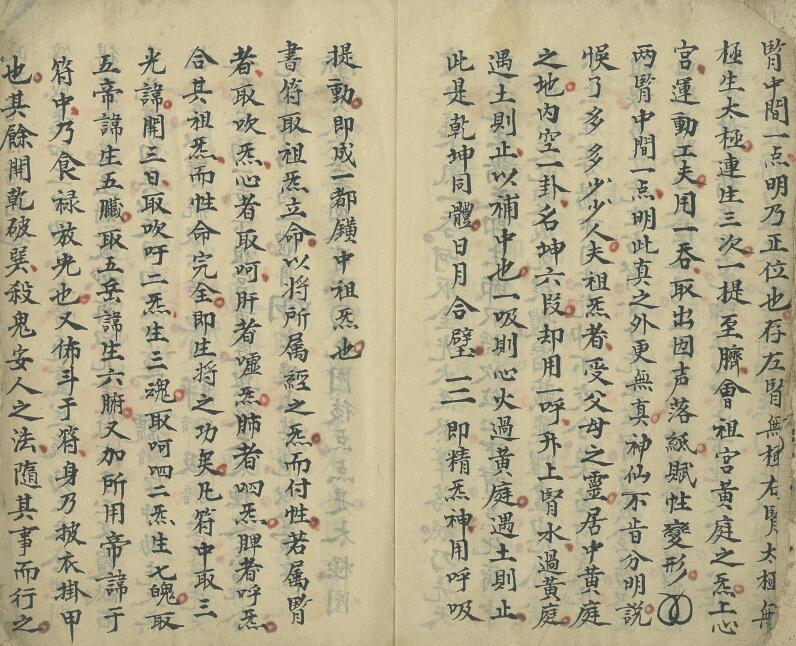 腎中間一点明乃正位也存左腎無極右腎太極無
極生太極連生三次一提至臍會祖宫黄庭之炁上心
宫運動工夫用一吞取出因声落紙賦性變形
两腎中間一点明此真之外更無真神仙不肯分明説
悞了多多少少人夫祖炁者受父母之靈居中黄庭
之地内空一卦名坤六段却用一呼升上腎水過黄庭
遇土則止以補中也一吸則心火過黄庭遇土則止
此是乾坤同體日月合璧三即精炁神用呼吸
提動即成一都鎮中祖炁也
書符取祖炁立命以將所属經之炁而付性若属腎
者取吹炁心者取呵肝者嘘炁肺者呬炁脾者呼炁
合其祖炁而性命完全即生將之功矣凡符中取三
光諱開三日取吹吁二炁生三魂取呵呬二炁生七魄取
五帝諱生五臟取五岳諱生六腑又加所用帝諱于
符中乃食禄放光也又佈斗于符身乃披衣掛甲
也其餘開乾破巽殺鬼安人之法随其事而行之